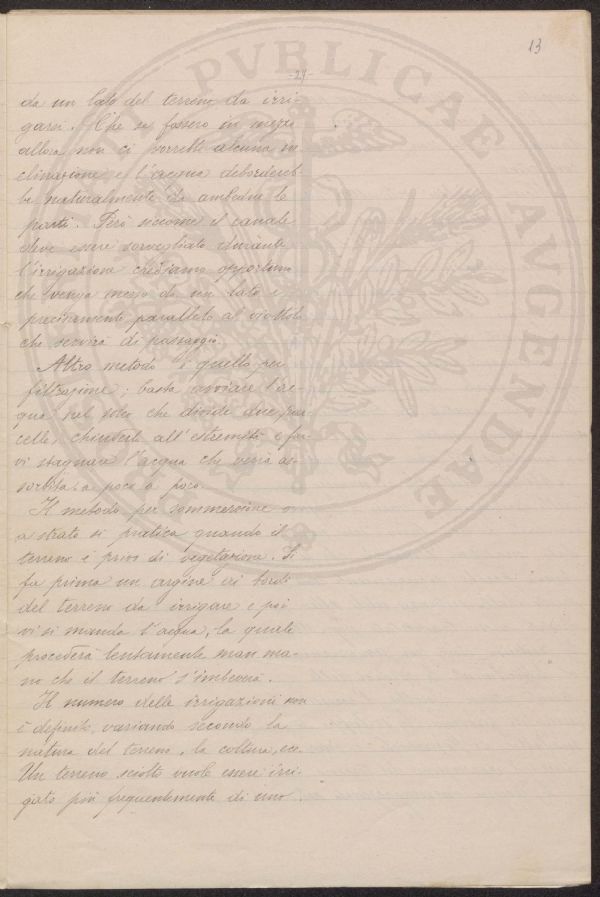 13
-24-
da un lato del terreno da irri-
garsi. Che se fossero in mezzo
allora non ci vorrebbe alcuna in
clinazione e l'acqua debordereb
be naturalmente da ambedue le
parti. Però siccome il canale
deve essere sorvegliato durante
l'irrigazione crediamo opportuno
che venga messo da un lato e
precisamente parallelo al viottolo
che servirà di passaggio.
Altro metodo è quello per
filtrazione; basta avviare l'ac-
qua nel solco che divide due par-
celle, chiuderle all'estremità e far
vi stagnare l'acqua che verrà as-
sorbita a poco a poco.
Il metodo per sommersione o
a strato si pratica quando il
terreno è privo di vegetazione. Si
fa prima un argine ai bordi
del terreno da irrigare e poi
vi si manda l'acqua, la quale
procederà lentamente man ma-
no che il terreno s'imbeverà.
Il numero delle irrigazioni non
è definito, variando secondo la
natura del terreno, la coltura, ecc.
Un terreno sciolto vuole essere irri-
gato più frequentemente di uno
PVBLICAE
AVGENDAE